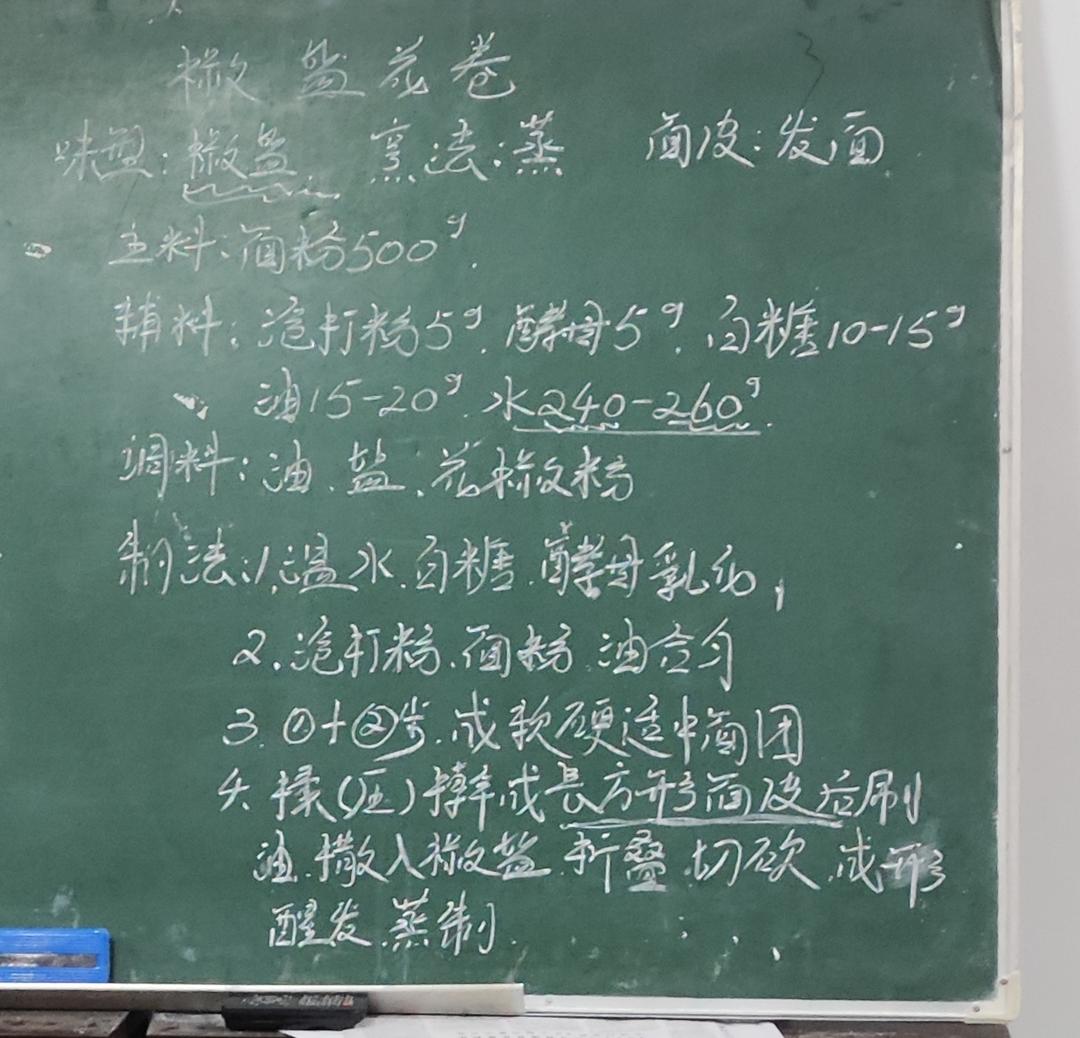 椒盐花卷
味型:椒盐 烹法:蒸 面皮:发面
主料:面粉500g.
辅料:泡打粉5g.酵母5g.白糖10-15g
油15-20g.水240-260g.
调料:油.盐.花椒粉
制法:1.温水.白糖.酵母乳化,
2.泡打粉.面粉.油合匀
3.①+②步.成软硬适中面团
4.揉(压)擀成长方形面皮后刷
油.撒入椒盐.折叠.切砍.成形
醒发.蒸制.